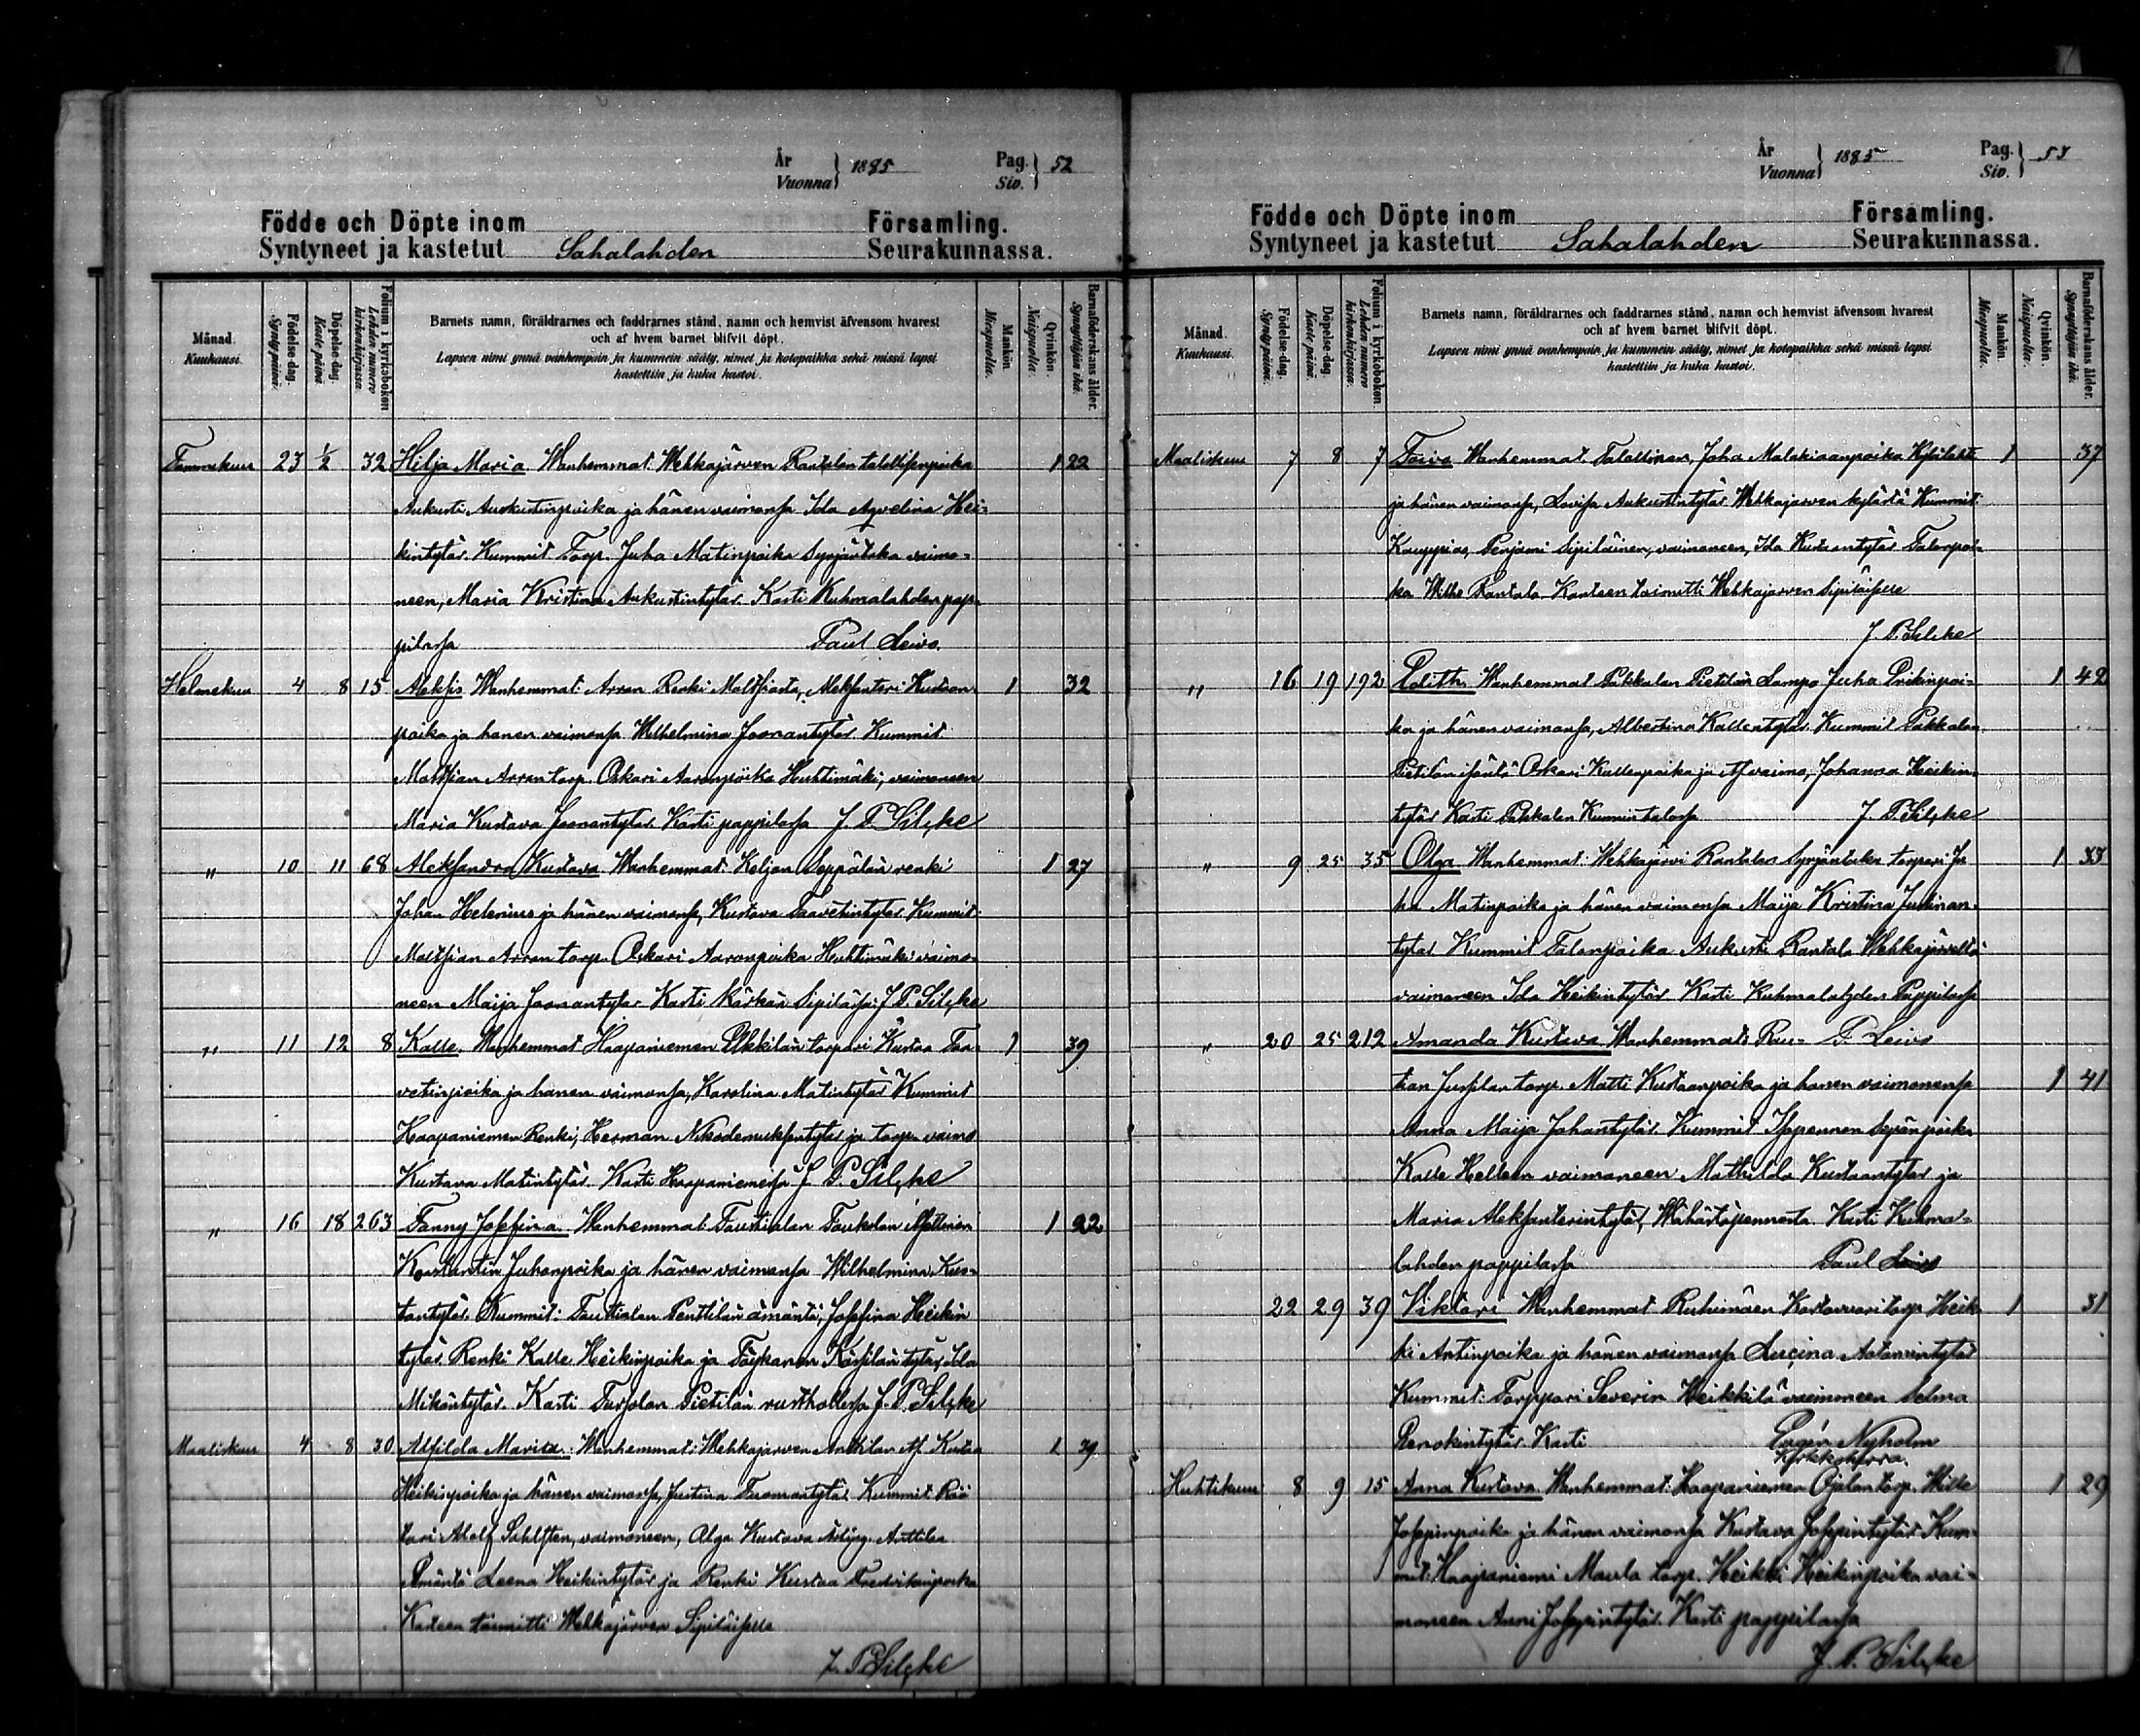 År
Vuonna } 1885 Pag.
Siv. } 52
Födde och Döpte inom Församling.
Syntyneet ja kastetut Sahalahden Seurakunnassa.
Månad.
Kuukausi.
Födelse-dag.
Synty päivä.
Döpelse-dag.
Kaste päivä
Folium i kyrkoboken
Lehden numero
kirkonkirjassa.
Barnets namn, föräldrarnes och faddrarnes stånd, namn och hemvist äfvensom hvarest
och af hvem barnet blifvit döpt.
Lapsen nimi ynnä vanhempain ja kummein sääty, nimet ja kotopaikka sekä missä lapsi
kastettiin ja kuka kastoi.
Mankön.
Miespuolia.
Qvinkön.
Naispuolia.
Barnaföderskans ålder.
Synnyttäjän ikä.
Tammekuu 23 1/2 32 Hilja Maria Wanhemmat Wehkajärven Rantalan 1 22
Aukusti Aukustinpoika ja hänen vaimonsa Ida Aqvelina Hei-
kintytär. Kummit Torp. Juha Matinpoika Syrjäntaka vaimo-
neen, Maria Kristina Aukustintytär. Kasti Kuhmalahden pap-
pilassa Paul Leivo.
Helmekuu 4 8 15 Aleksis Wanhemmat Arran Renki Moltsiasta, Aleksanteri Kustaan- 1 32
poika ja hanen vaimonsa Wilhelmina Joonantytär Kummit
Moltsian Arran torp. Oskari Aaronpoika Huhtimäki, vaimoneen
Maria Kustava Joonantytar. Kasti pappilassa J. P. Silçke
" 10 11 68 Aleksandra Kustava. Wanhemmat: Keljon Seppälän renki 1 27
Johan Helenius ja hänen vaimonsa, Kustava Taavetintytar Kummit
Moltsian Arran torp. Oskari Aaronpoika Huhtimäki vaimo-
neen Maija Joonantytar Kasti Kärkän Sipilässä: J. P. Silçke
" 11 12 8 Kalle. Wanhemmat Haapaniemen Ukkilan torpari Kustaa Taa- 1 39
vetinpoika ja hanen vaimonsa, Karolina Matintytär Kummit
Haapaniemen Renki, Herman ja torp. vaimo
Kustava Matintytär. Kasti Haapaniemessä J. P. Silçke
" 16 18 263 Fanny Josefina. Wanhemmat Taustialan 1 22
Konstantin Juhanpoika ja hänen vaimonsa Wilhelmina Kus-
tantytär. Kummit: Taustialan Penttilän emäntä, Josefina Heikin
tytär. Renki Kalle Heikinpoika ja tytär, Ida
Mikontytär. Kasti Tursolan Pietilän rusthollissa J. P. Silçke
Maaliskuu 4 8 30 Alfilda Maria. Wanhemmat: Wehkajärven Anttilan Kustaa 1 39
Heikinpoika ja hänen vaimonsa, Justina Tuomantytär Kummit Rää
täri Adolf vaimoneen, Olga Kustava Anttilan
Emäntä Leena Heikintytär ja Renki Kustaa
Kasteen toimitti Wehkajärven Sipiläisessä
J. P. Silçke
År
Vuonna } 1885 Pag.
Siv. } 53
Födde och Döpte inom Församling.
Syntyneet ja kastetut Sahalahden Seurakunnassa.
Månad.
Kuukausi.
Födelse-dag.
Synty päivä.
Döpelse-dag.
Kaste päivä.
Folium i kyrkoboken.
Lehden numero
kirkonkirjassa.
Barnets namn, föräldrarnes och faddrarnes stånd, namn och hemvist äfvensom hvarest
och af hvem barnet blifvit döpt.
Lapsen nimi ynnä vanhempain ja kummein sääty, nimet ja kotopaikka sekä missä lapsi
kastettiin ja kuka kastoi.
Mankön.
Miespuolia.
Qvinkön.
Naispuolia.
Barnaföderskans ålder.
Synnyttäjän ikä.
Maaliskuu 7 8 7 Toivo Wanhemmat Talollinen, Joha Malakiaanpoika 1 37
ja hänen vaimonsa, Lovisa Aukustintytär Wehkajarven kylästä Kummit
Kauppias, Penjami Sipiläinen, vaimoneen, Ida Kustaantytär Talonpoi-
ka Wilhe Rantala Kasteen toimitti Wehkajarven Sipiläissessä
J. P. Silçke
" 16 19 192 Edith. Wanhemmat Pakkalan Pietilän Lampo Juha Erikinpoi- 1 42
ka ja hänen vaimonsa, Albertina Kallentytär. Kummit Pakkalan
Pietilan isäntä Oskari Kallenpoika ja vaimo, Johanna Heikin-
tytär Kasti Pakkalan J. P. Silçke
" 9 25 35 Olga Wanhemmat: Wehkajärvi Rantalan Syrjäntaka torpari Ju 1 33
ha Matinpoika ja hänen vaimonsa Maija Kristina
tytar. Kummit Talonpoika Aukusti Rantala Wehkajärveltä
vaimoneen Ida Heikintytär Kasti Kuhmalahden Pappilassa
" 20 25 212 Amanda Kustava Wanhemmat: Rau- P. Leivo
tian Jussilan torp. Matti Kustaanpoika ja hanen vaimonensa 1 41
Anna Maija Johantytär. Kummit
Kalle Helleen vaimoneen Mathilda Kustaantytar ja
Maria Aleksanterintytär, Kasti Kuhma-
lahden pappilassa Paul Leivo
22 29 39 Viktori Wanhemmat torp. Heik- 1 31
ki Antinpoika ja hänen vaimonsa Lucina Aatamintytar
Kummit: Torppari Severin Heikkilä vaimoneen Selma
Kasti Eugén Nyholm
Kirkkoherra.
Huhtikuu 8 9 15 Anna Kustava. Wanhemmat: Haapaniemen Ojalan torp. Wille 1 29
Josepinpoika ja hänen vaimonsa Kustava Josepintytär Kum-
mit: Haapaniemi Maula torp. Heikki Heikinpoika vai-
moneen Anni Josepintytär. Kasti pappilassa
J. P. Silçke